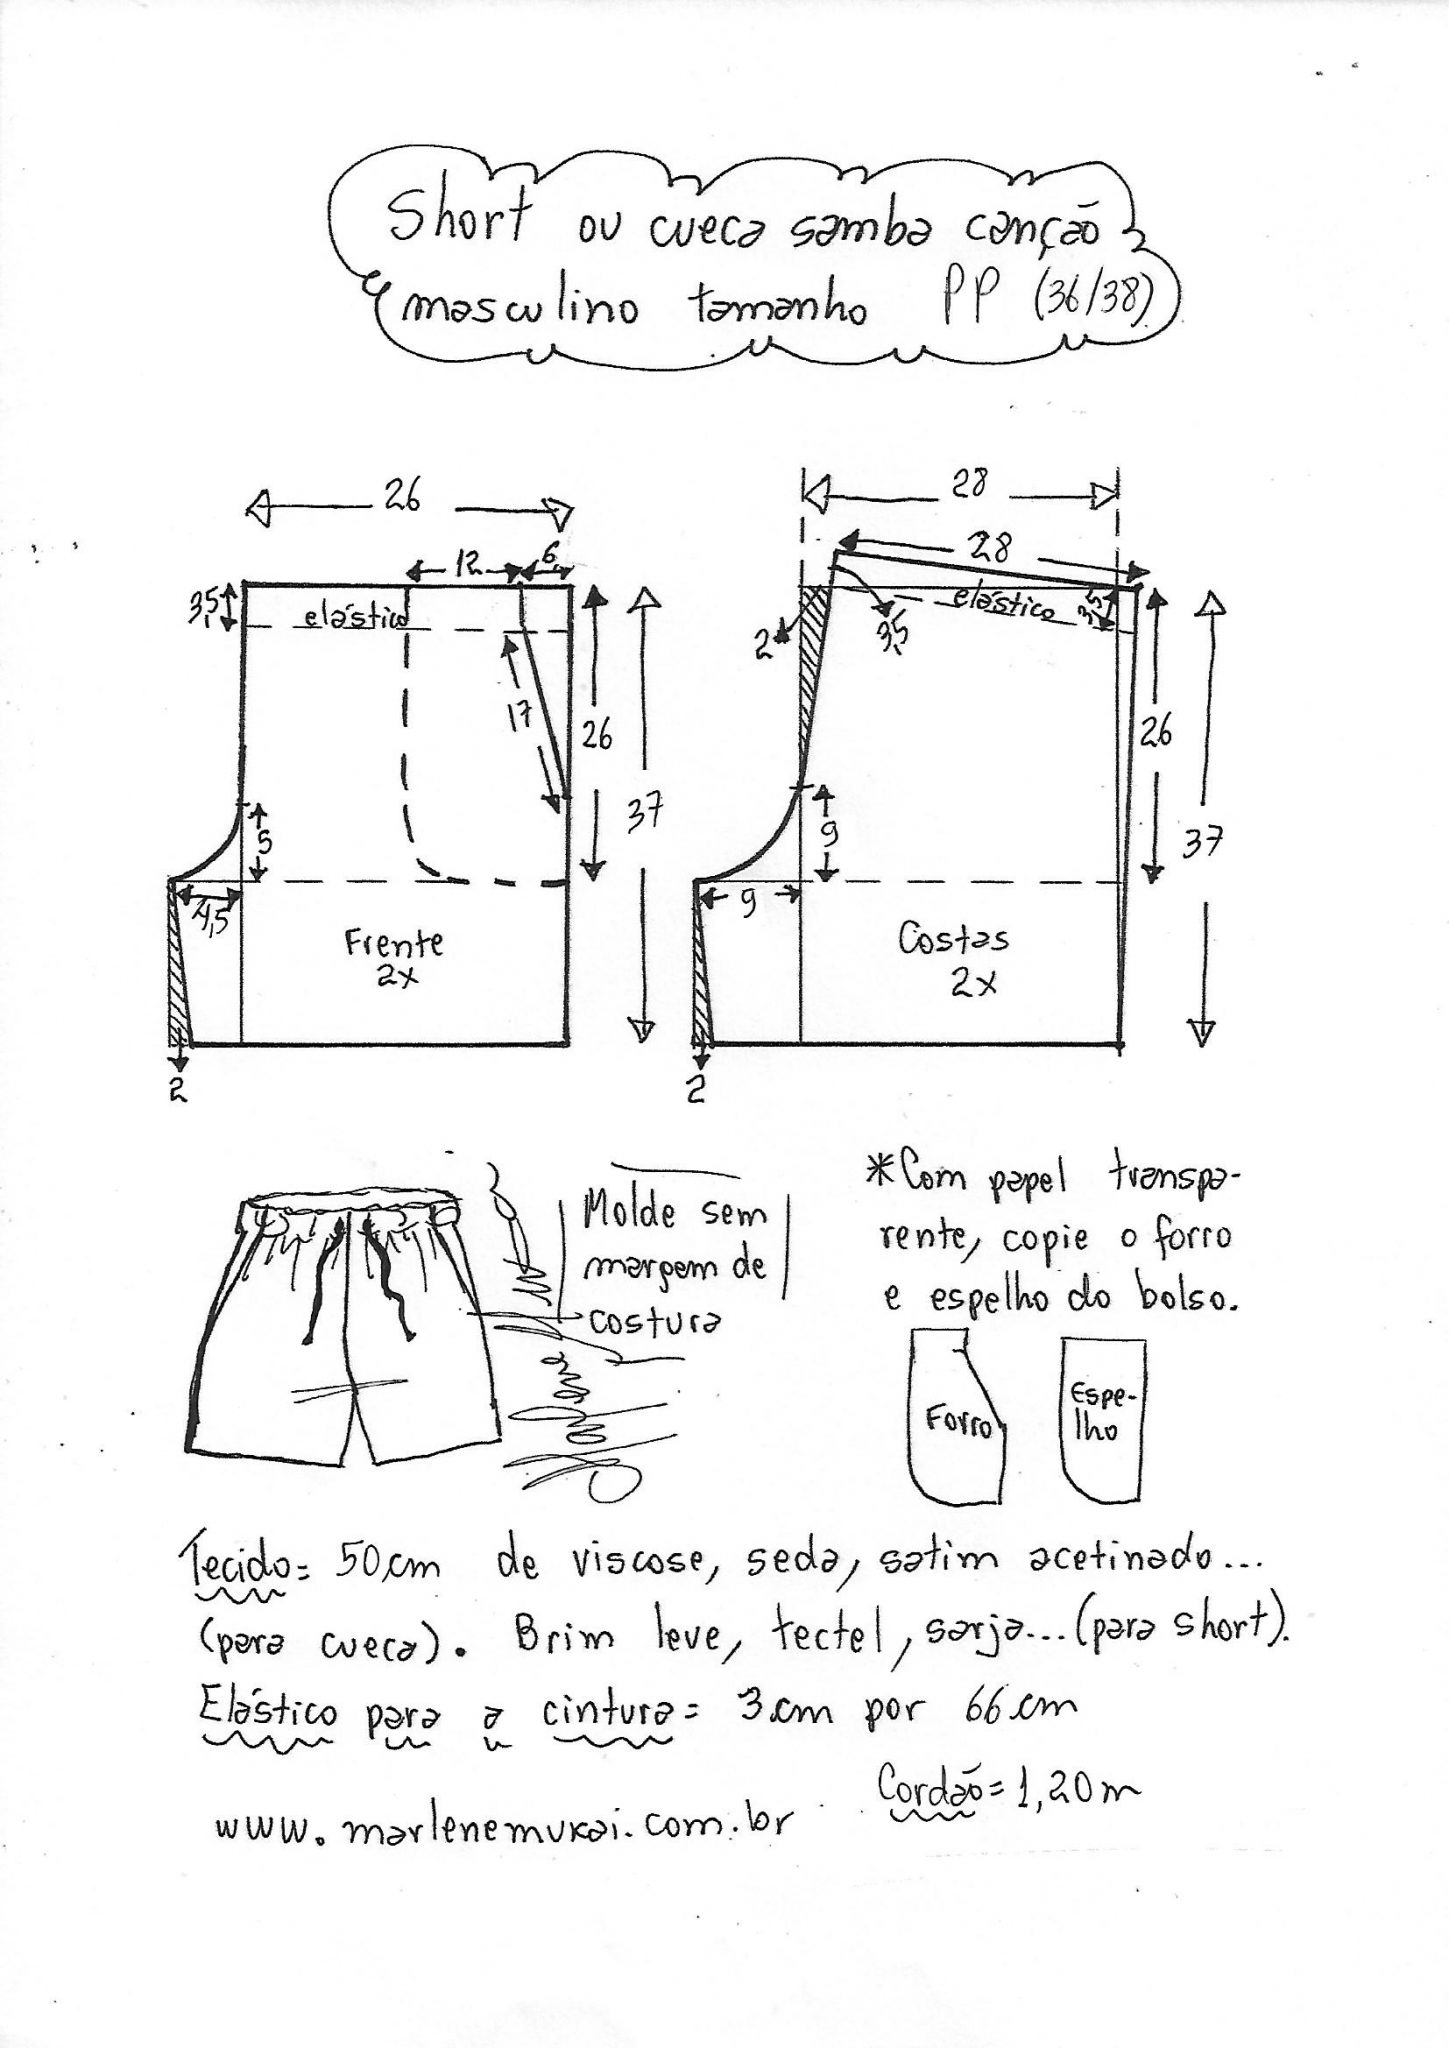 Short ou cueca samba canção
masculino tamanho PP (36/38)
26
12
6
3,5
elástico
17
26
37
5
4,5
Frente
2x
2
28
28
elástico
3,5
2
3,5
26
37
9
9
Costas
2x
2
Molde sem
margem de
costura
*Com papel transpa-
rente, copie o forro
e espelho do bolso.
Forro
Espe-
lho
Tecido= 50cm de viscose, seda, satim acetinado...
(para cueca). Brim leve, tectel, sarja...(para short).
Elástico para a cintura= 3cm por 66cm
Cordão= 1,20m
www.marlenemukai.com.br